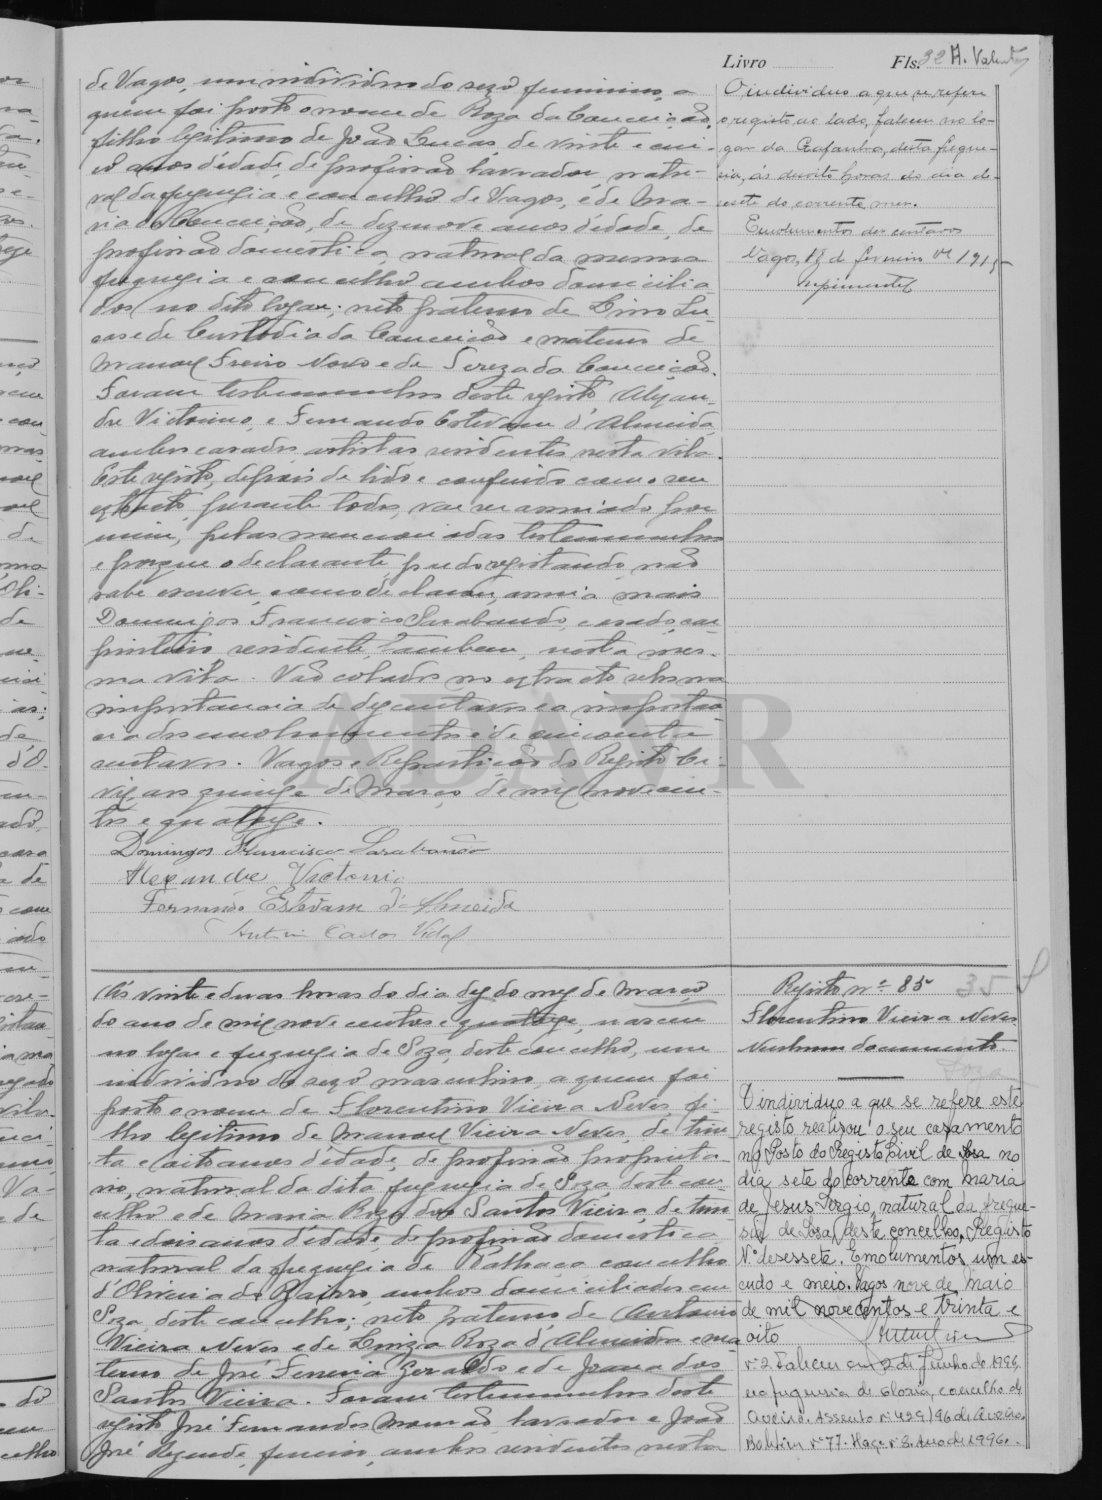 Livro Fls. 32 A. Valente
de Vagos, um individuo do sexo feminino, a
quem foi posto o nome de Roza da Conceição,
filho legitimo de João Lucas, de vinte e cin-
co anos d'edade, de profissão lavrador, natu-
ral da freguezia e concelho de Vagos, e de Ma-
ria da Conceição, de dezenove anos d'edade, de
profissão domestica, natural da mesma
freguezia e concelho, ambos domicilia-
dos no dito logar; neto paterno de Lino Lu-
cas e de Custodia da Conceição e materno de
Manoel Freire Novo e de Tereza da Conceição.
Foram testemunhas deste registo Alexan-
dre Victorino, e Fernando Estevam d'Almeida,
ambos casados, artistas, residentes nesta vila.
Este registo, depois de lido e conferido com o seu
extracto, perante todos, vae ser assinado por
mim, pelas mencionadas testemunhas
e porque o declarante, pae do registando, não
sabe escrever, como declarou, assina mais
Domingos Francisco Sarabando, casado, car-
pinteiro, residente, tambem, nesta mes-
ma vila. Vão colados no extracto selos na
importancia de dez centavos e a importan-
cia dos emolumentos é de cincoenta
centavos. Vagos e Repartição do Registo Ci-
vil, aos quinze de Março de mil novecen-
tos e quatorze.
Domingos Francisco Sarabando
Alexandre Victorino
Fernando Estevam d'Almeida
Carlos Vidal
O individuo a que se refere
o registo ao lado, faleceu no lo-
gar da Gafanha, desta fregue-
sia, ás dezoito horas do dia de-
sete do corrente mes.
Emolumentos dez centavos
Vagos, 18 de fevereiro de 1915
ADAVR
Ás vinte e duas horas do dia dez do mez de Março
do ano de mil novecentos e quatorze, nasceu
no logar e freguezia de Soza, deste concelho, um
individuo do sexo masculino, a quem foi
posto o nome de Florentino Vieira Neves, fi-
lho legitimo de Manoel Vieira Neves, de trin-
ta e oito anos d'edade, de profissão proprieta-
rio, natural da dita freguezia de Soza, deste con-
celho e de Maria Roza dos Santos Vieira, de trin-
ta e dois anos d'edade, de profissão domestica
natural da freguezia de Palhaça, concelho
d'Oliveira do Bairro, ambos domiciliados em
Soza, deste concelho; neto paterno de Antonio
Vieira Neves e de Luiza Roza d'Almeida e ma-
terno de José Ferreira Geraldo e de Joana dos
Santos Vieira. Foram testemunhas deste
registo José Fernandes Mourão, lavrador e João
José Rezende, ferreiro, ambos residentes nesta
Registo nº 85
35
Florentino Vieira Neves
Nenhum documento.
Soza
O individuo a que se refere este
registo realisou o seu casamento
no Posto do Registo Civil de Sosa no
dia sete do corrente com Maria
de Jesus Sergio, natural da fregue-
sia de Sosa, deste concelho, Registo
Nº desessete. Emolumentos um es-
cudo e meio. Vagos nove de Maio
de mil novecentos e trinta e
oito
nº 2. Faleceu em 2 de Junho de 1996
na freguesia de Gloria, concelho de
Aveiro. Assento nº 429/96 de Aveiro.
Boletim nº 77. Maço nº 3. Ano de 1996.